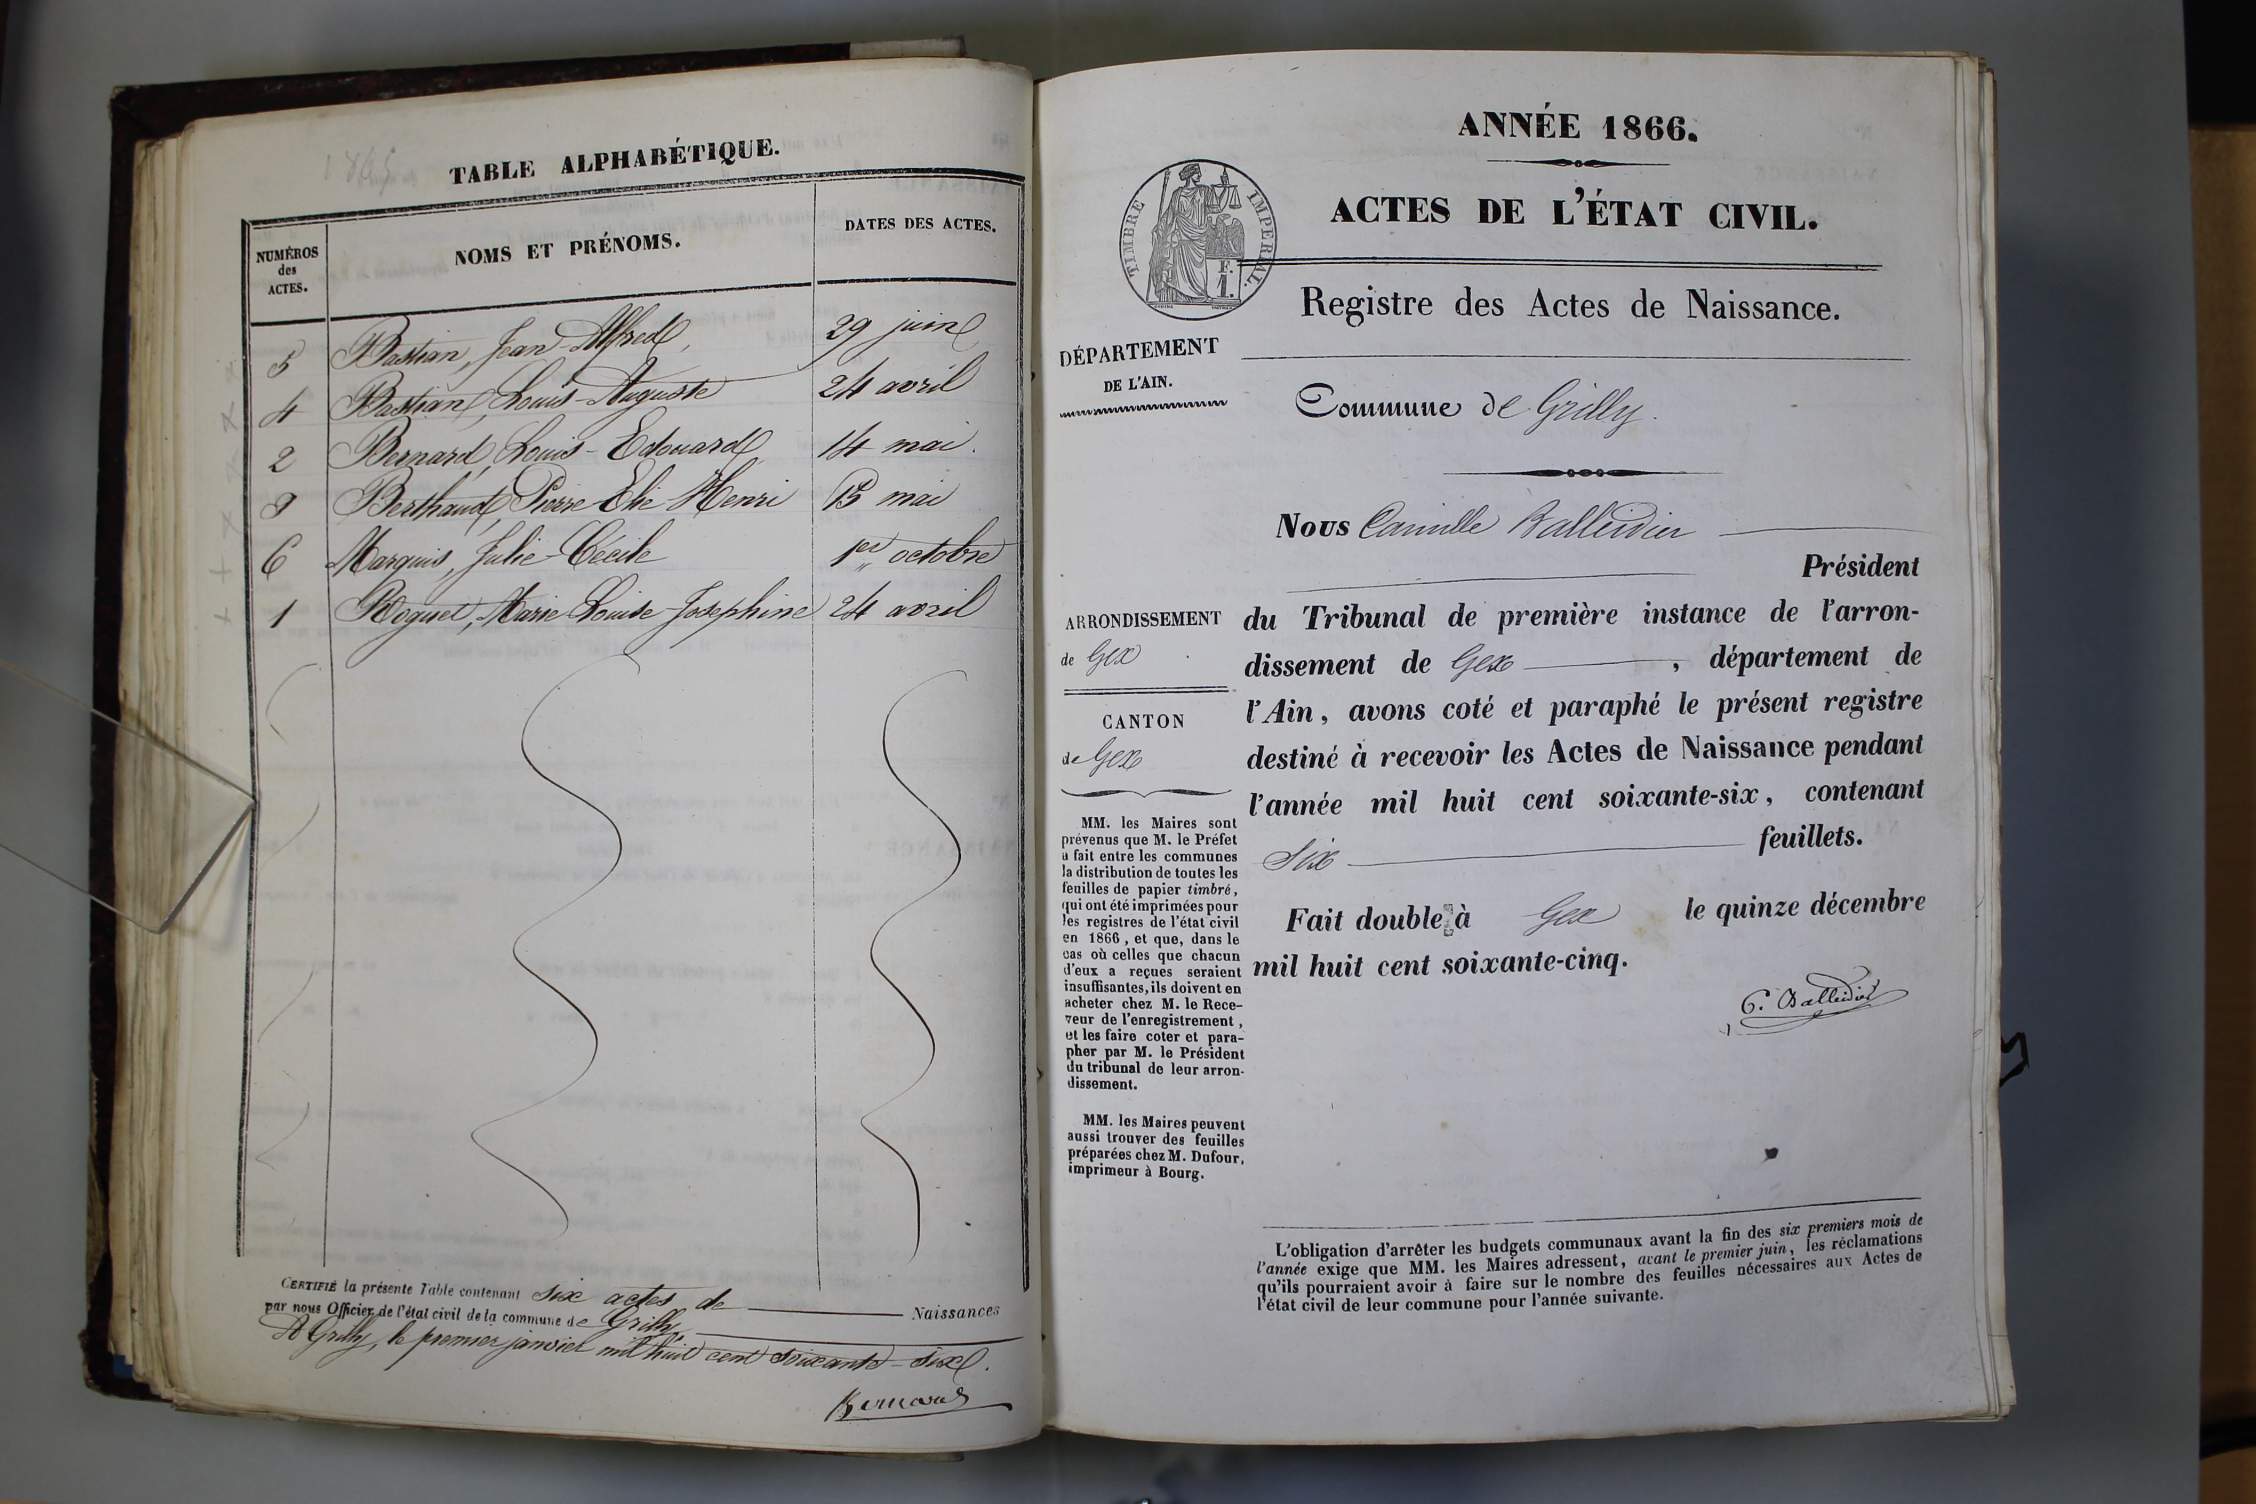 1865
TABLE ALPHABÉTIQUE.
NUMÉROS
des
ACTES.
NOMS ET PRÉNOMS.
DATES DES ACTES.
5 Bastian, Jean-Alfred, 29 juin
4 Bastian, Louis-Auguste 24 avril
2 Bernard, Louis-Edouard 14 mai.
3 Berthaud, Pierre Elie Henri 15 mai
6 Marquis, Julie-Cécile 1er octobre
1 Roguet, Marie Louise-Josephine 24 avril
CERTIFIÉ la présente Table contenant six actes de Naissances
par nous Officier de l'état civil de la commune de Grilly
A Grilly, le premier janvier mil huit cent soixante-six.
Bernard
ANNÉE 1866.
TIMBRE IMPERIAL.
F.
1.
ACTES DE L'ÉTAT CIVIL.
Registre des Actes de Naissance.
DÉPARTEMENT
DE L'AIN.
Commune de Grilly.
Nous Camille Balleidier
Président
ARRONDISSEMENT
de Gex
CANTON
de Gex
du Tribunal de première instance de l'arron-
dissement de Gex, département de
l'Ain, avons coté et paraphé le présent registre
destiné à recevoir les Actes de Naissance pendant
l'année mil huit cent soixante-six, contenant
six feuillets.
Fait double à Gex le quinze décembre
mil huit cent soixante-cinq.
C. Balleidier
MM. les Maires sont
prévenus que M. le Préfet
a fait entre les communes
la distribution de toutes les
feuilles de papier timbré,
qui ont été imprimées pour
les registres de l'état civil
en 1866, et que, dans le
cas où celles que chacun
d'eux a reçues seraient
insuffisantes, ils doivent en
acheter chez M. le Rece-
veur de l'enregistrement,
et les faire coter et para-
pher par M. le Président
du tribunal de leur arron-
dissement.
MM. les Maires peuvent
aussi trouver des feuilles
préparées chez M. Dufour,
imprimeur à Bourg.
L'obligation d'arrêter les budgets communaux avant la fin des six premiers mois de
l'année exige que MM. les Maires adressent, avant le premier juin, les réclamations
qu'ils pourraient avoir à faire sur le nombre des feuilles nécessaires aux Actes de
l'état civil de leur commune pour l'année suivante.